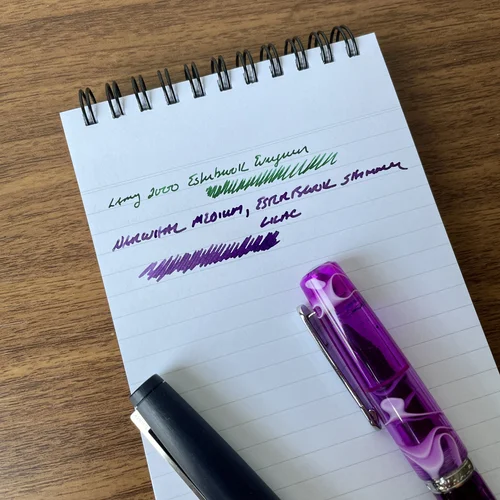 Lamy 2000 Esterbrook Evergreen
NARWHAL MEDIUM, ESTERBROOK SHIMMER
LILAC